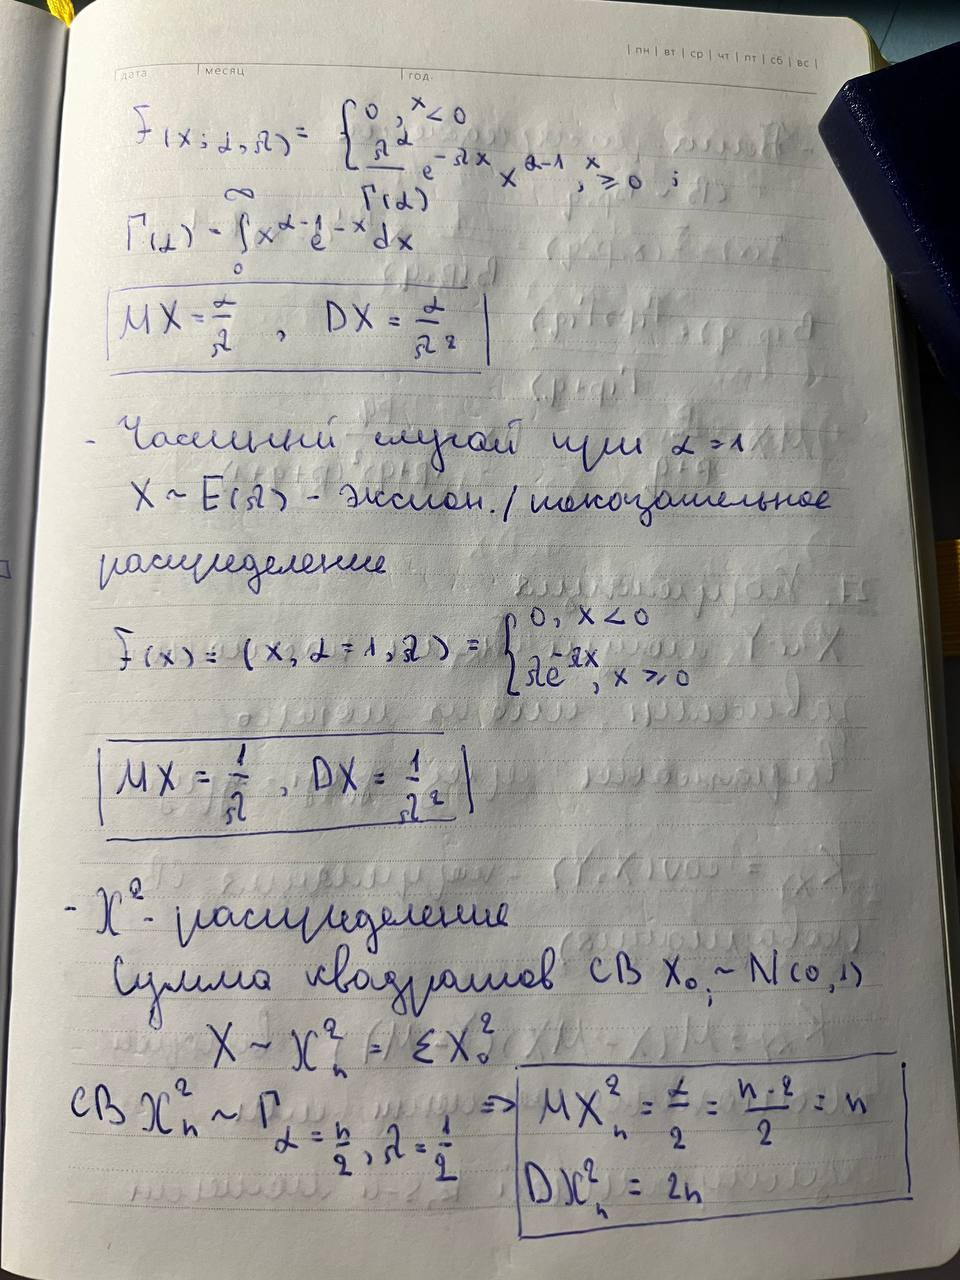 | пн | вт | ср | чт | пт | сб | вс |
дата | месяц | год.
F(x; α, λ) = { 0, x < 0
λ^α / Γ(α) e^{-λx} x^{α-1}, x ≥ 0 ;
Γ(α) = ∫_0^∞ x^{α-1} e^{-x} dx
MX = α/λ , DX = α/λ²
- Частный случай при α = 1
X ~ E(λ) - экспон. / показательное
распределение
F(x) = (x, α = 1, λ) = { 0, x < 0
λe^{-λx}, x ≥ 0
MX = 1/λ , DX = 1/λ²
- X² - распределение
Сумма квадратов СВ X₀ᵢ ~ N(0,1)
X ~ X²ₙ = ΣX₀²
СВ X²ₙ ~ Γ_{α = n/2, λ = 1/2} => MX²ₙ = α/2 = n·2/2 = n
DX²ₙ = 2n